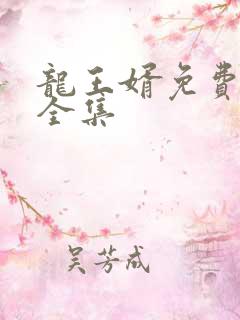 龍王婿免費
全集
吴芳成